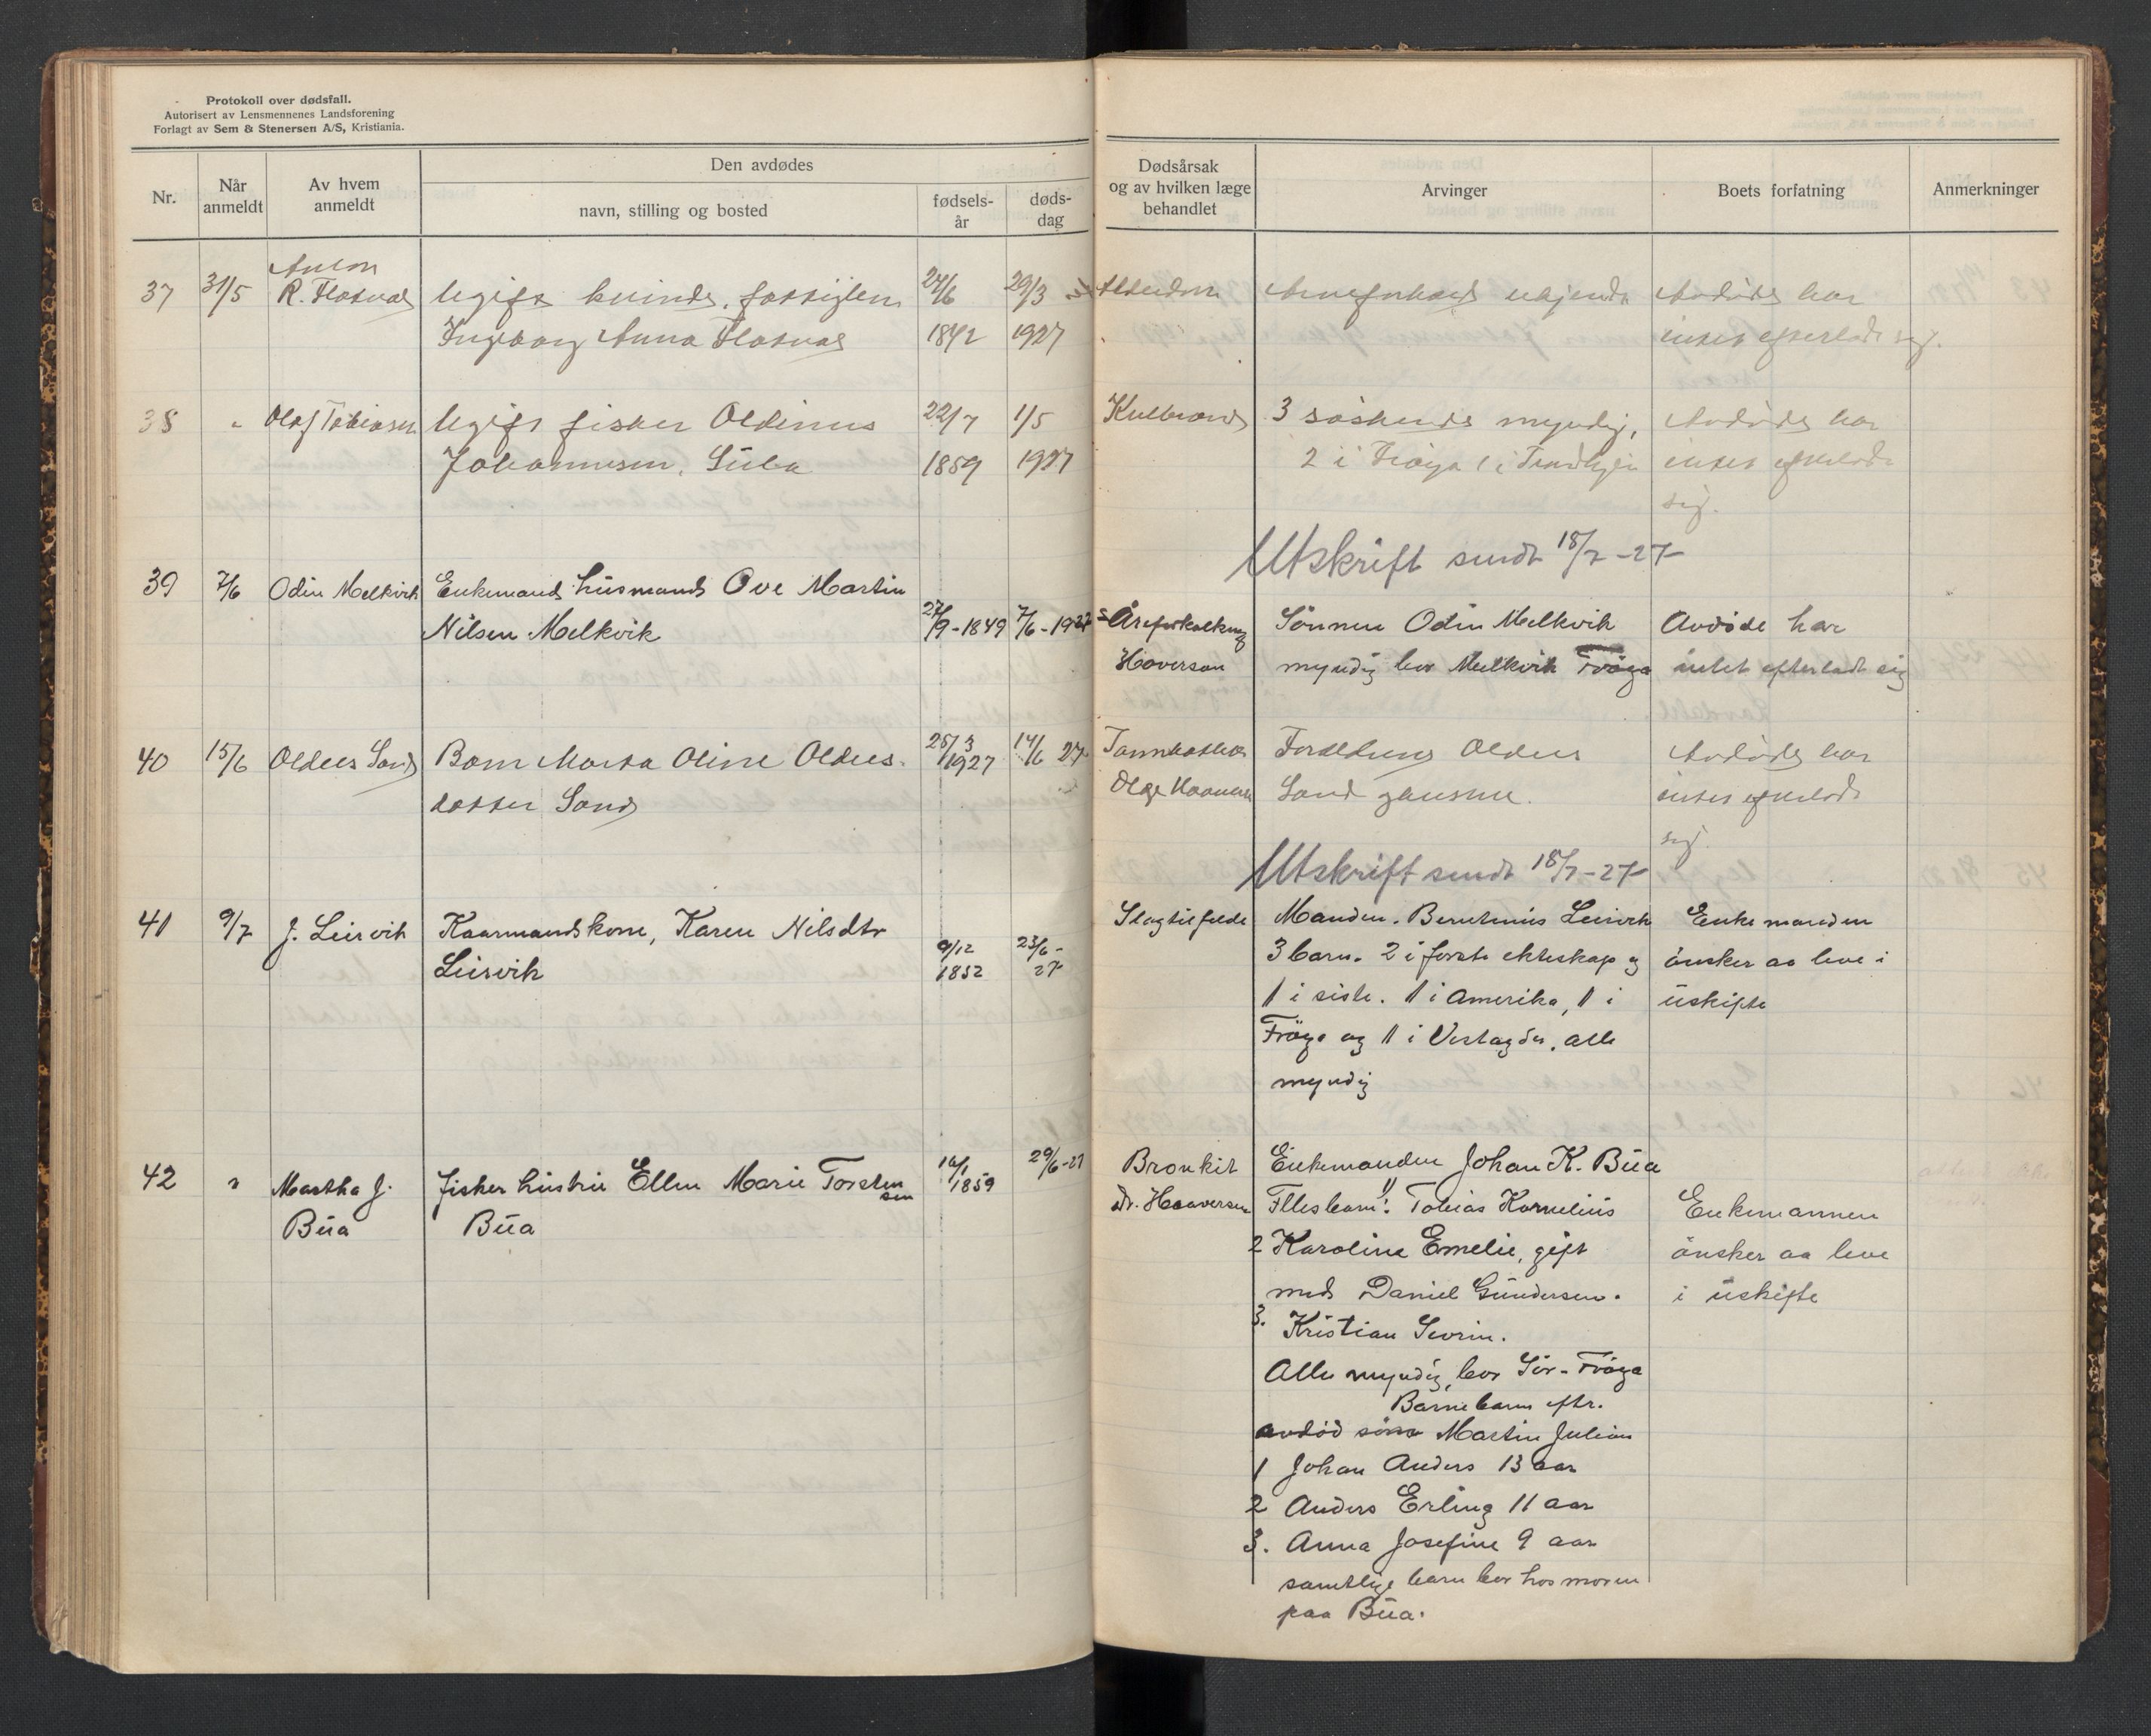 Protokoll over dødsfall.
Autorisert av Lensmennenes Landsforening
Forlagt av Sem & Stenersen A/S, Kristiania.
Nr.
Når anmeldt
Av hvem anmeldt
Den avdødes
navn, stilling og bosted
fødsels-år
døds-dag
Dødsårsak
og av hvilken læge
behandlet
Arvinger
Boets forfatning
Anmerkninger
37 31/5 Anton 24/6 29/3 Alderdom Avdøde har
R. Flatval ugift kvinde, fattiglem
Ingeborg Anna Flatval 1842 1927 intet efterladt sig.
38 " Olaf Tobiassen ugift fisker Oldinus 22/7 1/5 Kulbrand 3 søskende myndig, Avdøde har
Johannesen, Sula 1859 1927 2 i Frøya 1 i intet efterladt
sig.
Utskrift sendt 18/7-27
39 7/6 Odin Melkvik Enkemand husmand Ove Martin
Nilsen Melkvik 27/9-1849 7/6-1927 Åreforkalkning Sønnen Odin Melkvik Avdøde har
Haaversen myndig bor Melkvik Frøya intet efterladt sig
40 15/6 Oldeus Sand Barn Marta Oline Oldeus- 25/3 1927 14/6 27 Forældrene Oldeus Avdøde har
datter Sand Sand g hustru. intet efterladt
sig.
Utskrift sendt 18/7-27
41 9/7 J. Leirvik Kaarmandskone, Karen Nilsdtr 9/12 23/6- Slagtilfelde Manden. Berntinius Leirvik Enkemanden
Leirvik 1852 27 3 barn. 2 i første ekteskap og ønsker aa leve i
1 i siste. 1 i Amerika, 1 i uskifte
Frøya og 1 i Vestagder, alle
myndig
42 " Martha J. Fisker hustru Ellen Marie Torstensen 16/1 1859 29/6-27 Bronkit Enkemanden Johan K. Bua
Bua Bua Dr. Haaversen Fllesbarn: 1) Tobias Kornelius Enkemannen
2 Karoline Emelie, gift ønsker aa leve
med Daniel Gundersen. i uskifte
3. Kristian Sevrin.
Alle myndig, bor Sør-Frøya
Barnebarn eftr.
avdød sønn Martin Julian
1 Johan Anders 13 aar
2 Anders Erling 11 aar
3. Anna Josefine 9 aar
samtlige barn bor hos moren
paa Bua.